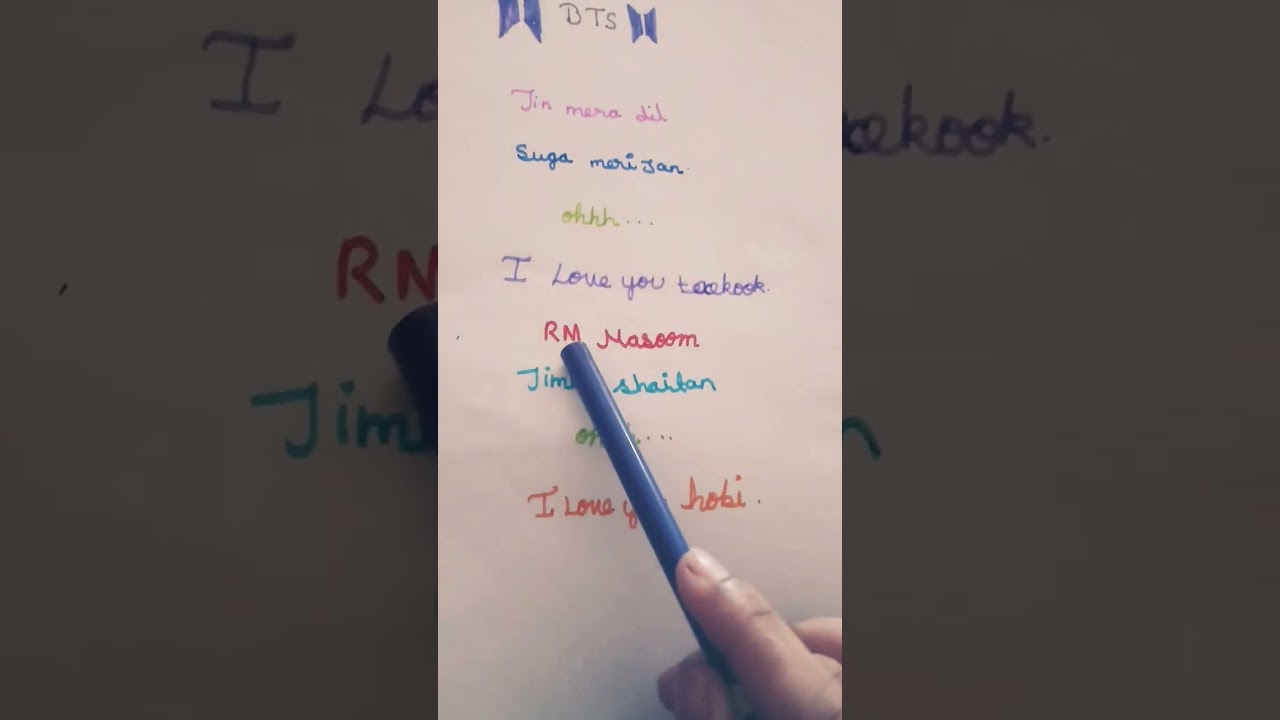 BTS
Jin mera dil
Suga meri Jan.
ohhh...
I Love you taekook.
RM Masoom
Jim shaitan
I Love hobi.